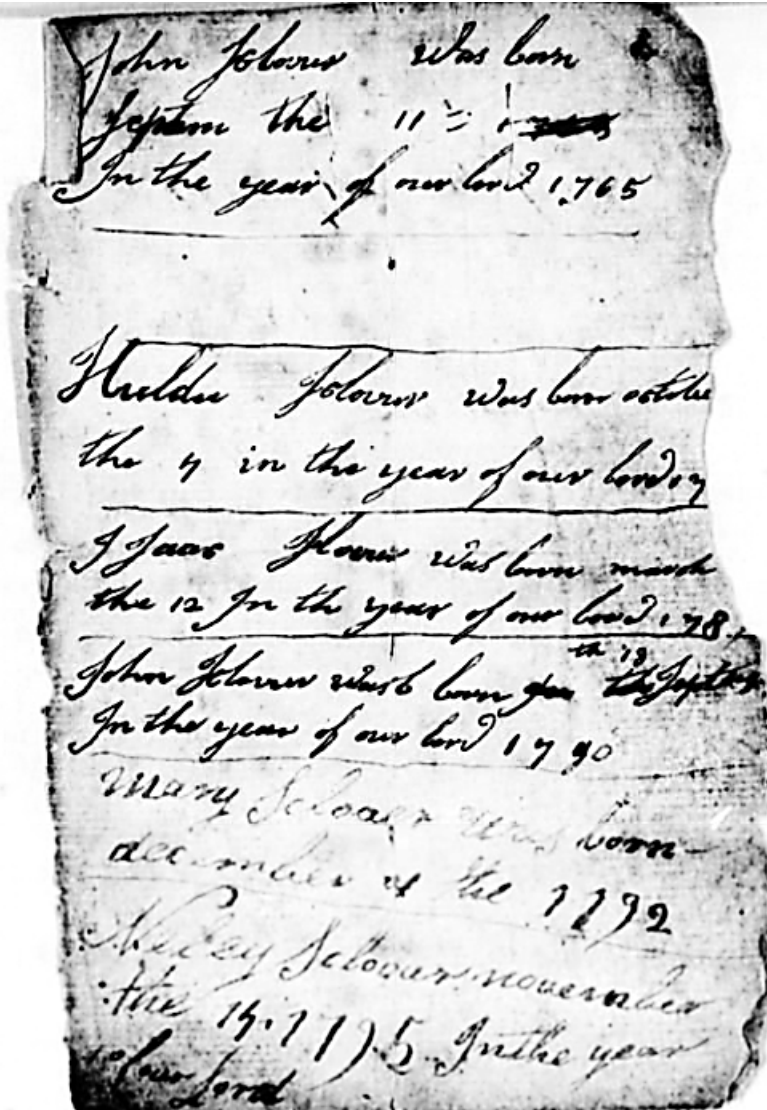 John Sclover was born
Septem the 11
In the year of our lord 1765
Huldu Sclover was born octobe
the 4 in the year of our lord 17
Isaac Slover was born march
the 12 In th year of our lord 178
th 18
John Sclover wasb born the Septem
In the year of our lord 1790
Mary Scloaer was born
december the 1792
Scloouer november
the 14. 1795 In the year
of our Lord